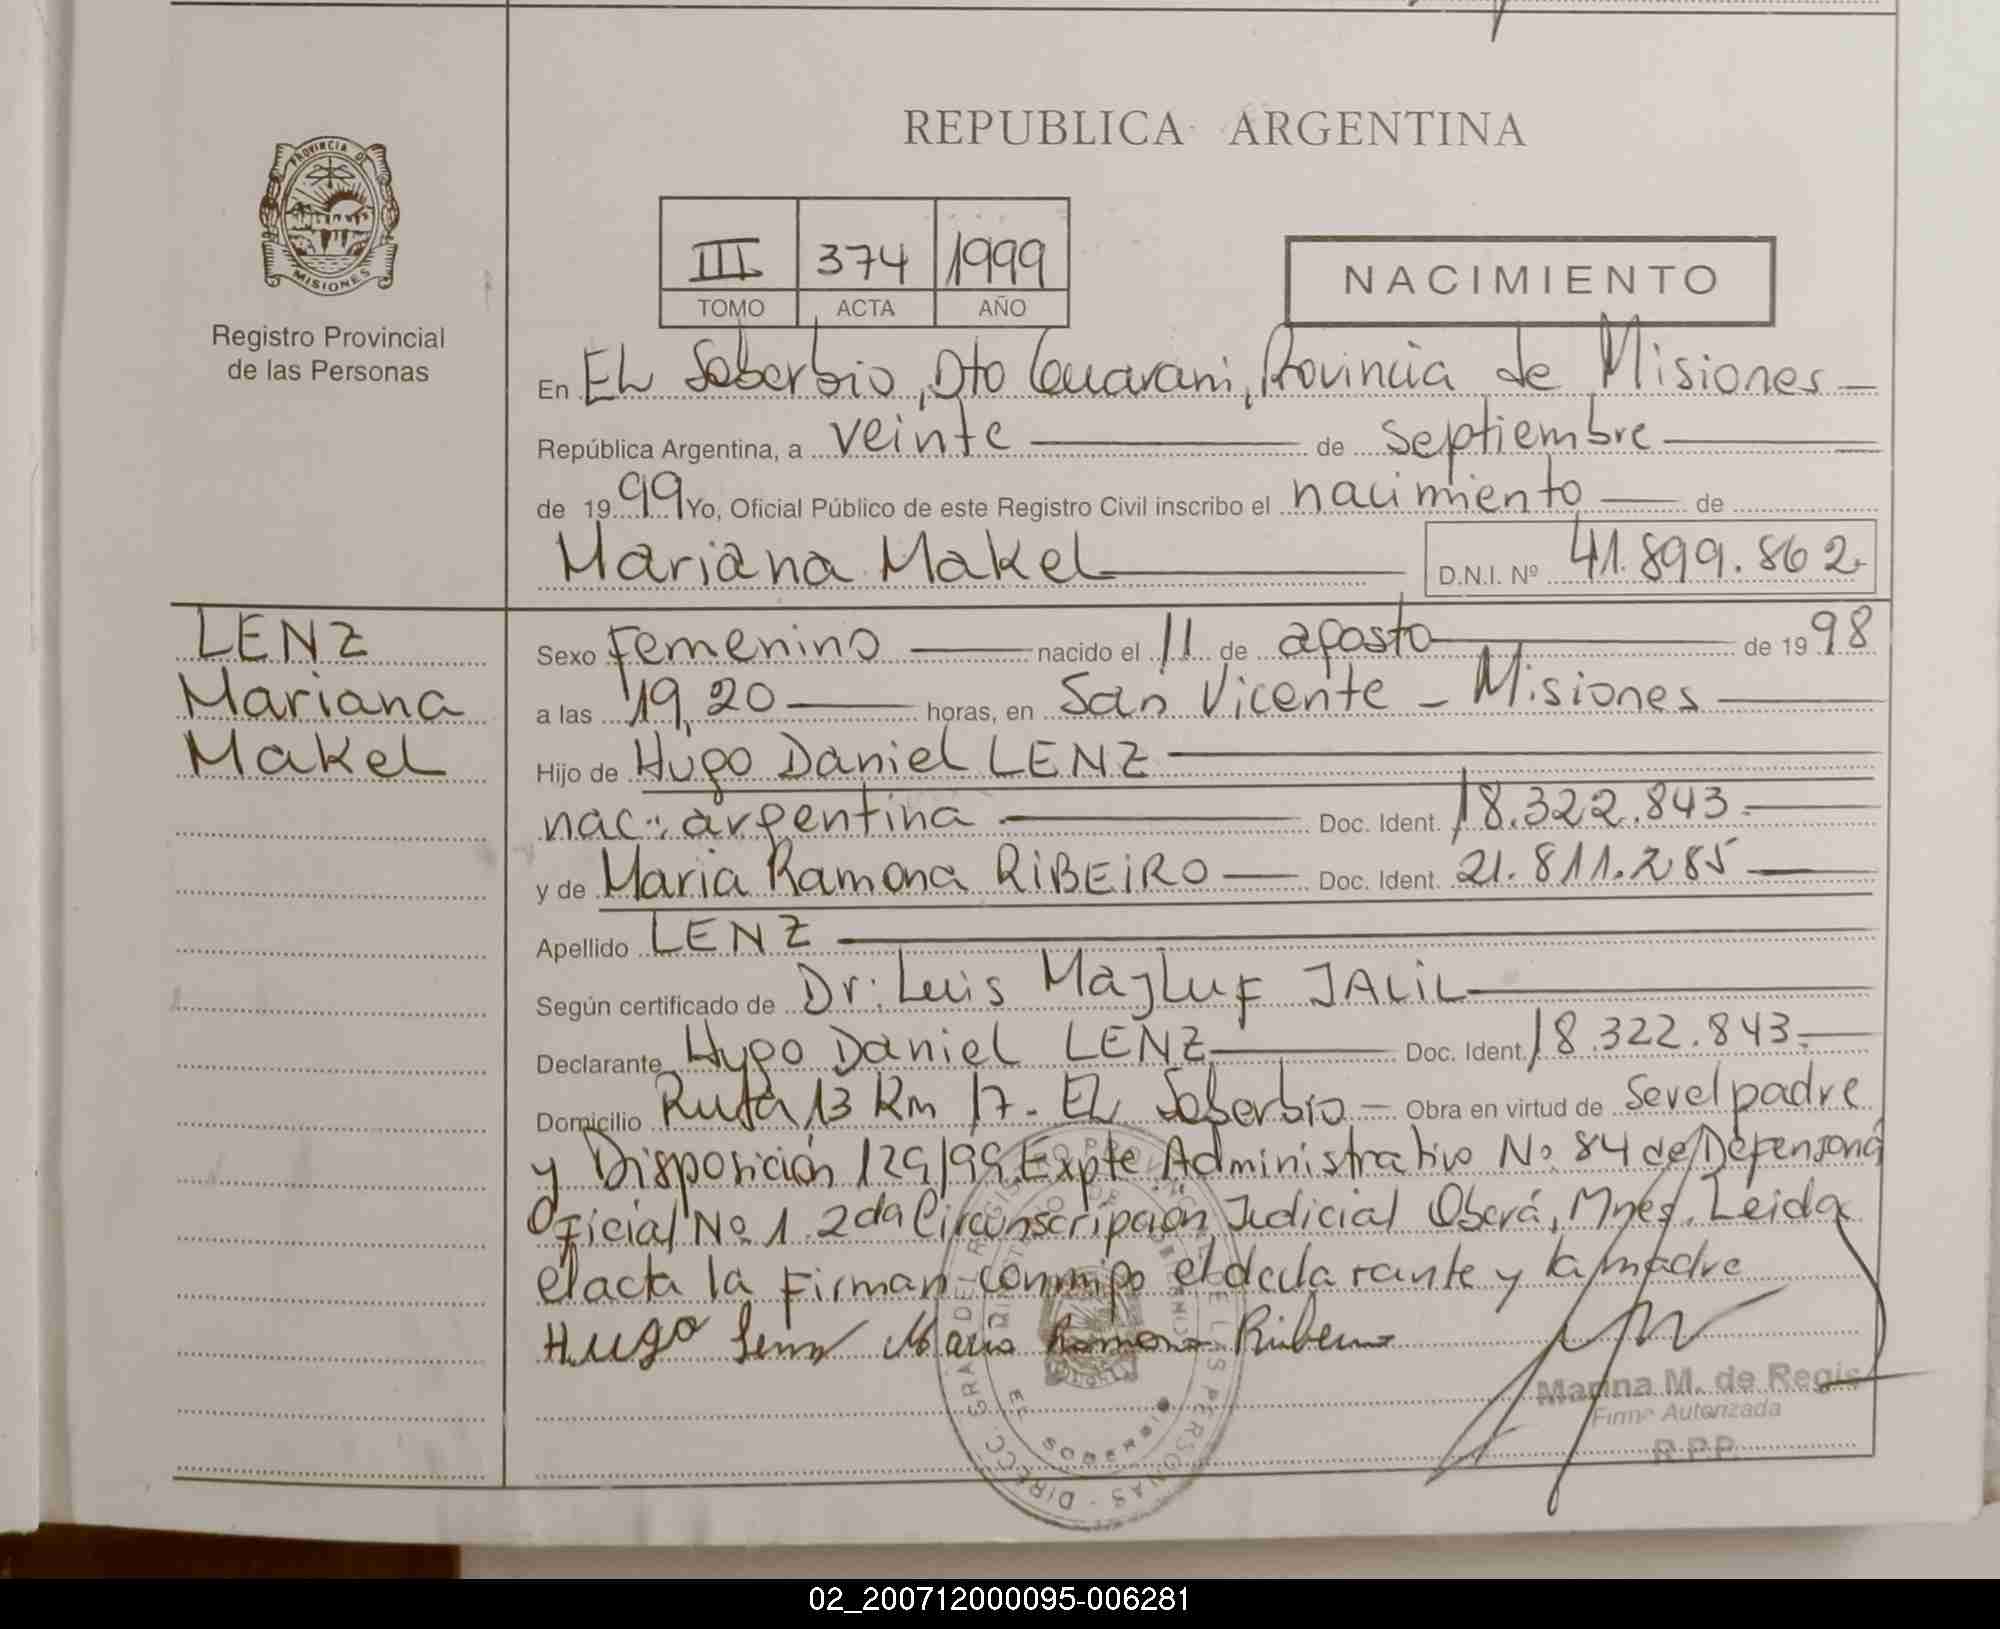 REPUBLICA ARGENTINA
PROVINCIA DE
MISIONES
Registro Provincial
de las Personas
III 374 1999
TOMO ACTA AÑO
NACIMIENTO
En EL Soberbio, Dto Guarani, Provincia de Misiones
República Argentina, a veinte de septiembre
de 1999 Yo, Oficial Público de este Registro Civil inscribo el nacimiento de
Mariana Makel D.N.I. Nº 41.899.862
LENZ
Mariana
Makel
Sexo Femenino nacido el 11 de agosto de 1998
a las 19,20 horas, en San Vicente - Misiones
Hijo de Hugo Daniel LENZ
nac: argentina Doc. Ident. 18.322.843
y de Maria Ramona RIBEIRO Doc. Ident. 21.811.285
Apellido LENZ
Según certificado de Dr: Luis Majluf JALIL
Declarante Hugo Daniel LENZ Doc. Ident. 18.322.843
Domicilio Ruta 13 Km 17 - EL Soberbio - Obra en virtud de Ser el padre
y Disposición 129/99 Expte Administrativo No 84 de Defensoria
Oficial No 1 2da Circunscripción Judicial Oberá, Mnes. Leida
el acta la firman conmigo el declarante y la madre
Hugo Lenz Maria Ramona Ribeiro
Marina M. de Regis
Firma Autorizada
R.P.P.
EL SOBERBIO
02_200712000095-006281